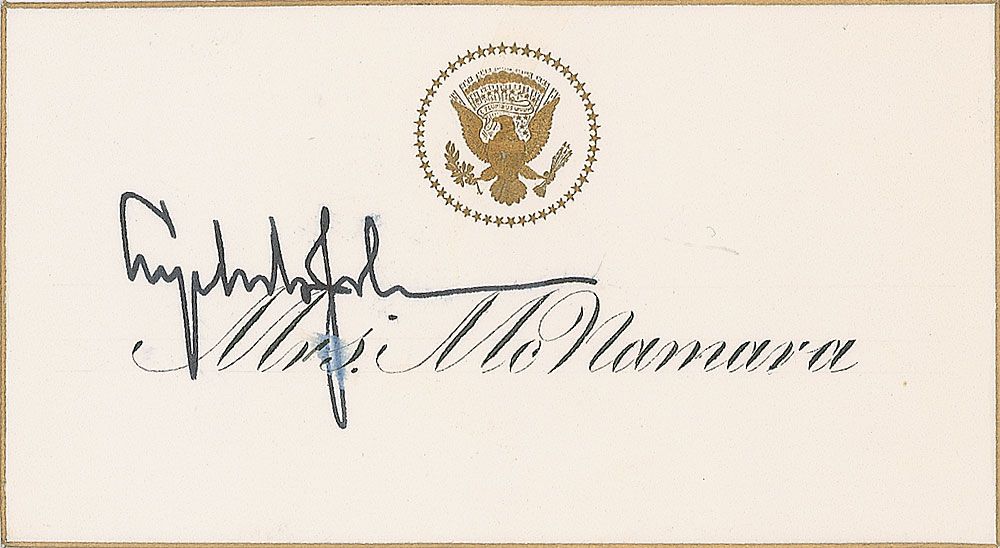 Lyndon B. Johnson
Mrs. McNamara